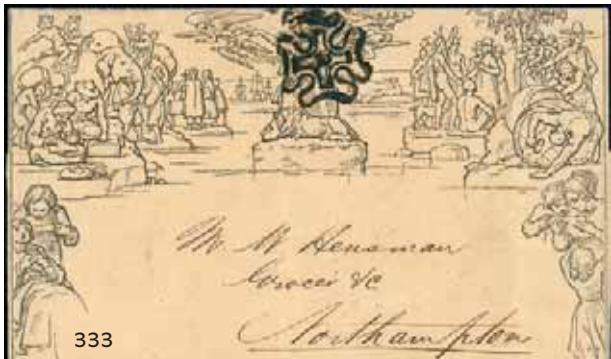 Mr W Hensman
Grocer &c
Northampton
333